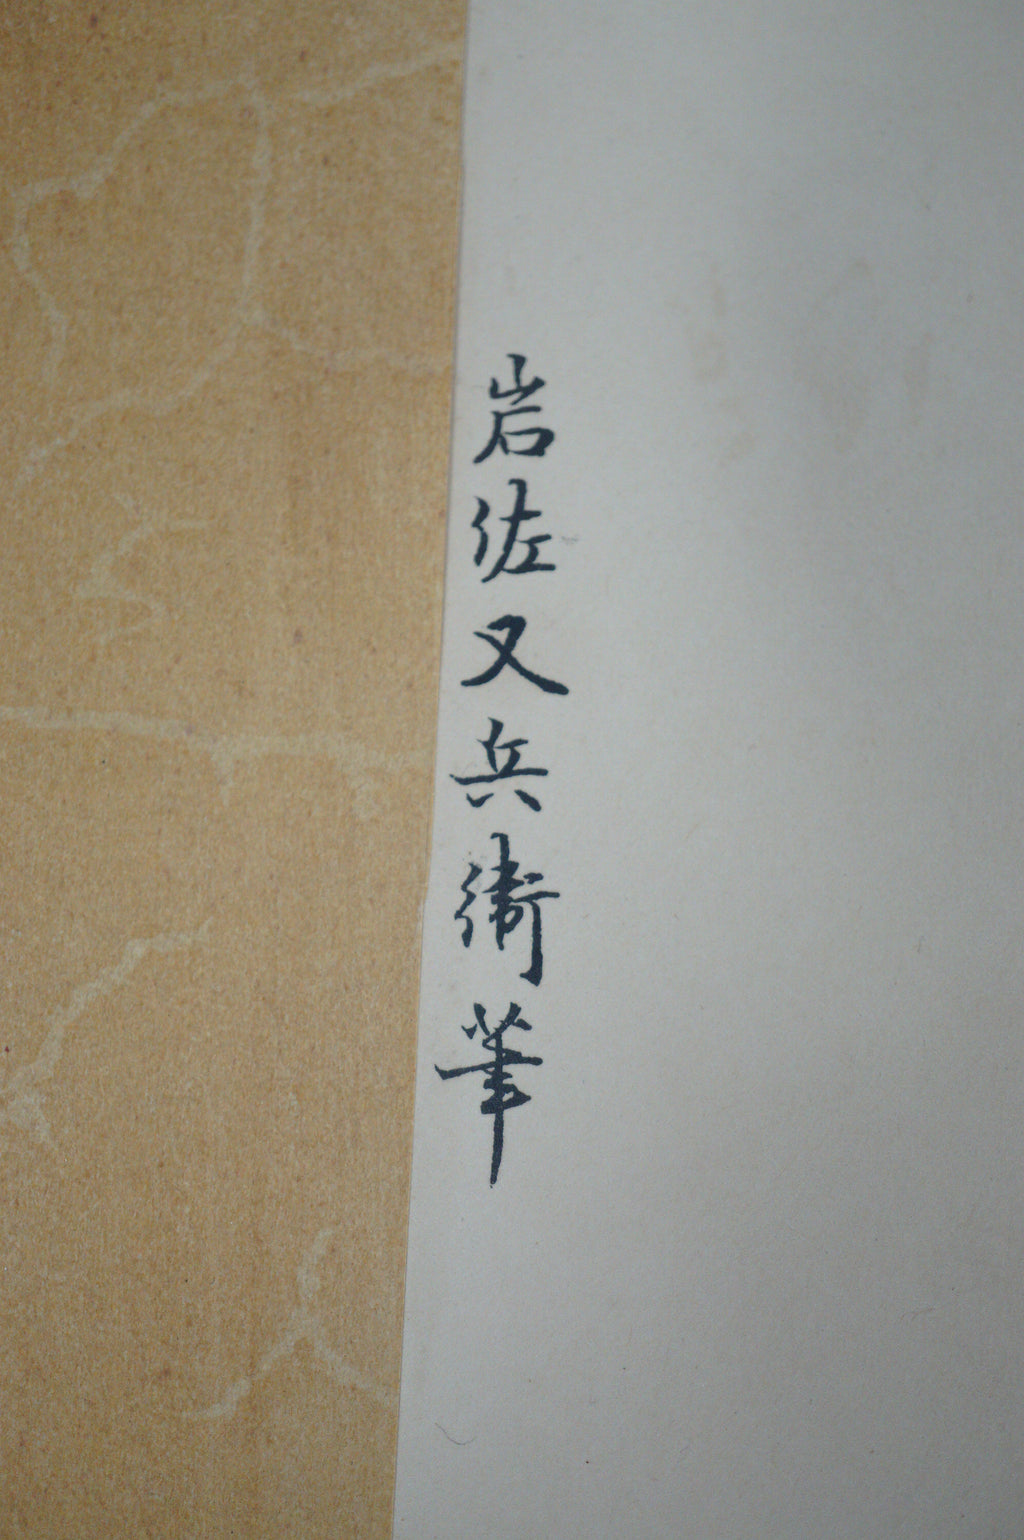 岩佐又兵衛筆